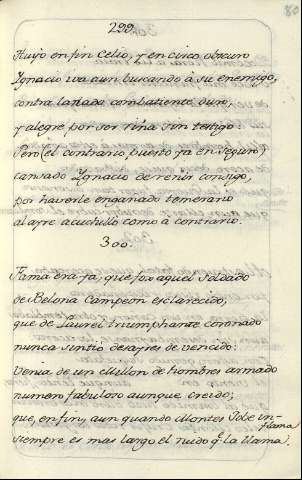 299.
Huyò en fin Celio, y en circo obscuro
Ygnacio iva aun buscando à su enemigo,
contra la nada combatiente duro,
y alegre por ser riña sin testigo:
Pero (el contrario puesto ya en seguro)
cansado Ygnacio de reñir consigo,
por haverle engañado temerario
al ayre acuchillo como à contrario.
300.
Fama era ya, que fox aquel Soldado
de Belona Campeon esclarecido,
que de Laurel triumphante coronado
nunca sintio desayres de vencido:
Venia de un Millon de hombres armado
numero fabuloso aunque creido;
que, en fin, aun quando Montes Jobe in-
flama
siempre es mas largo el ruido q.^e la llama.